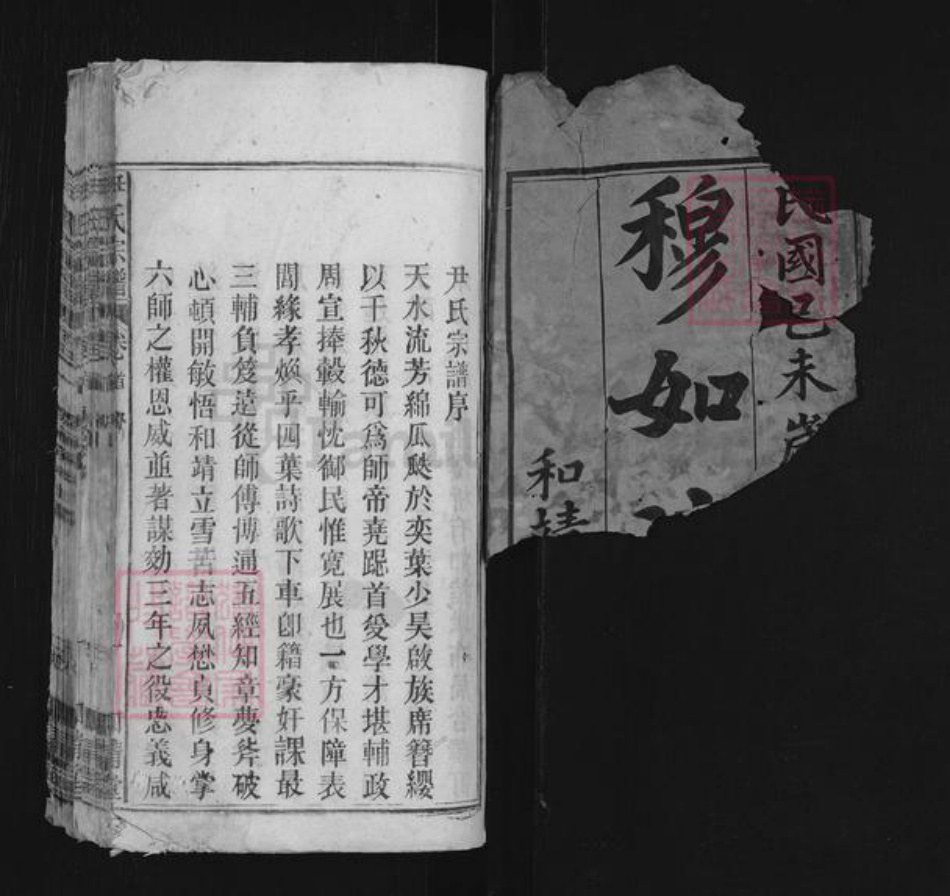 民國己未歲
穆如
和靖
尹氏宗譜序
天水流芳綿瓜瓞於奕葉少昊啟族席簪纓
以千秋德可為師帝堯跽首受學才堪輔政
周宣捧轂輸忱御民惟寬展也一方保障表
閭緣孝煥乎四葉詩歌下車卽籍豪奸課最
三輔負笈遠從師傅博通五經知章夢斧破
心頓開敏悟和靖立雪苦志夙懋貞修身掌
六師之權恩威並著謀勷三年之役忠義咸